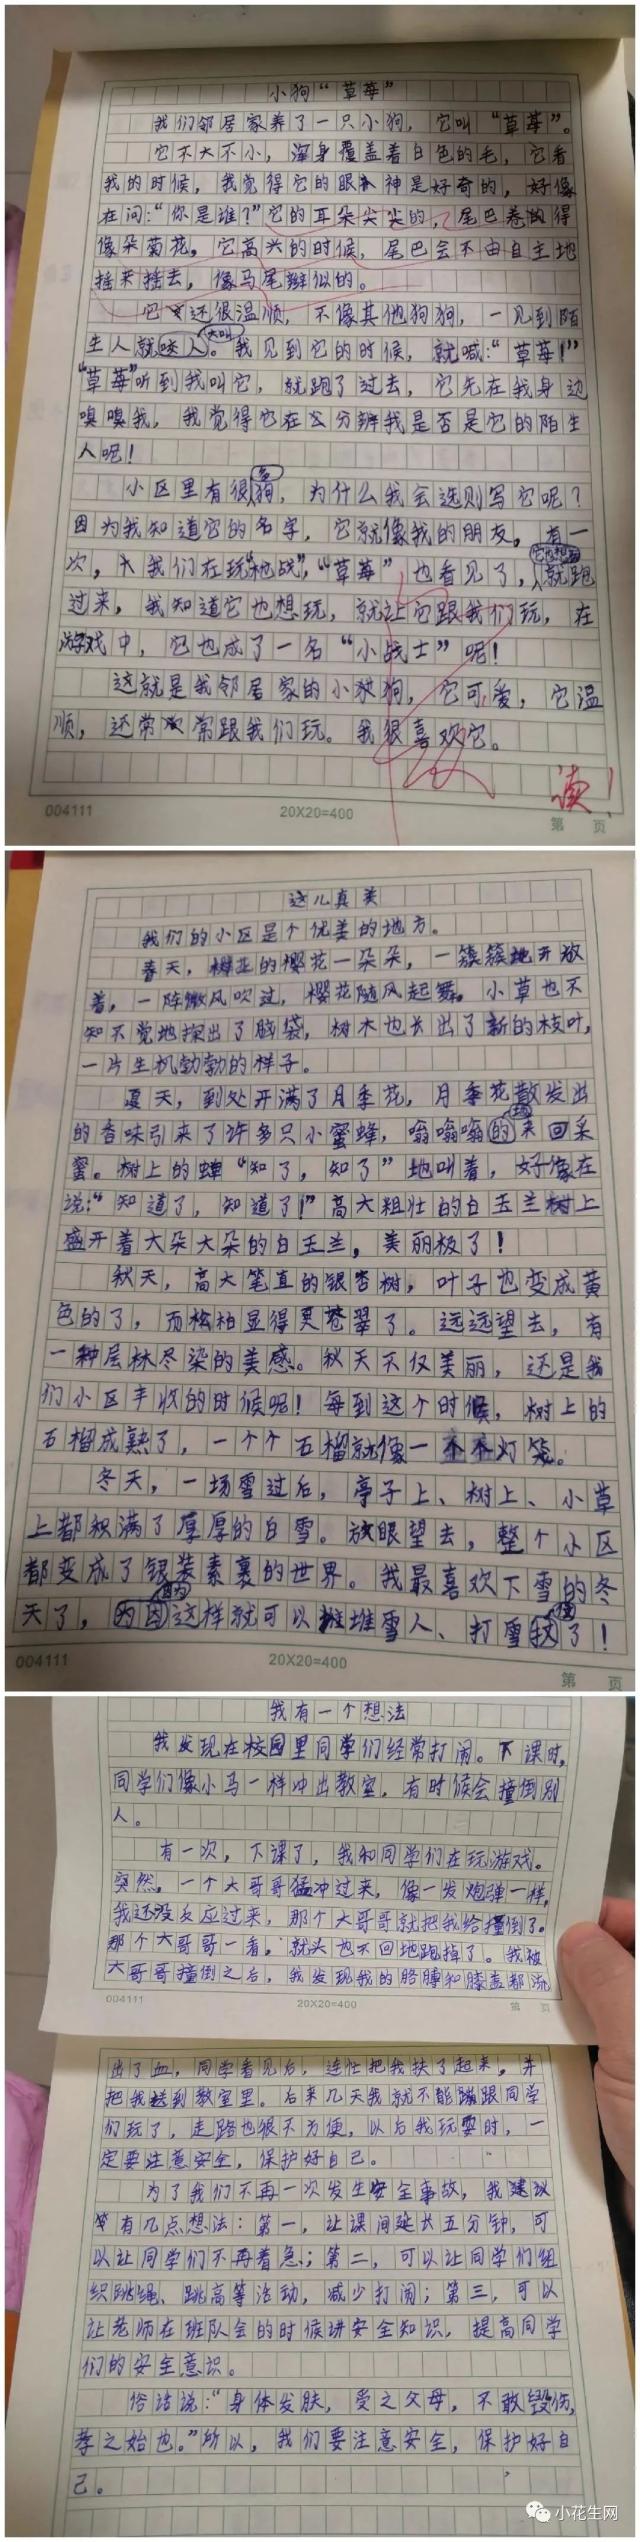 小狗“草莓”
我们邻居家养了一只小狗，它叫“草莓”。
它不大不小，浑身覆盖着白色的毛，它看
我的时候，我觉得它的眼神是好奇的，好像
在问：“你是谁？”它的耳朵尖尖的，尾巴卷得
像朵菊花。它高兴的时候，尾巴会不由自主地
摇来摇去，像马尾辫似的。
它还很温顺，不像其他狗狗，一见到陌
生人就大叫。我见到它的时候，就喊：“草莓！”
“草莓”听到我叫它，就跑了过去，它先在我身边
嗅嗅我，我觉得它在分辨我是否是它的陌生
人呢！
小区里有很多狗，为什么我会选则写它呢？
因为我知道它的名字，它就像我的朋友。有一
次，我们在玩“枪战”，“草莓”也看见了，它也想玩就跑
过来，我知道它也想玩，就让它跟我们玩，在
游戏中，它也成了一名“小战士”呢！
这就是我邻居家的小狗，它可爱，它温
顺，还常常跟我们玩。我很喜欢它。
读！
004111
20×20=400
第 页
这儿真美
我们的小区是个优美的地方。
春天，樱花一朵朵，一簇簇地开放
着，一阵微风吹过，樱花随风起舞。小草也不
知不觉地探出了脑袋，树木也长出了新的枝叶，
一片生机勃勃的样子。
夏天，到处开满了月季花，月季花散发出
的香味引来了许多只小蜜蜂，嗡嗡嗡地来回采
蜜。树上的蝉“知了，知了”地叫着，好像在
说：“知道了，知道了！”高大粗壮的白玉兰树上
盛开着大朵大朵的白玉兰，美丽极了！
秋天，高大笔直的银杏树，叶子也变成黄
色的了，而松柏显得更苍翠了。远远望去，有
一种层林尽染的美感。秋天不仅美丽，还是我
们小区丰收的时候呢！每到这个时候，树上的
石榴成熟了，一个个石榴就像一个个灯笼。
冬天，一场雪过后，亭子上、树上、小草
上都积满了厚厚的白雪。放眼望去，整个小区
都变成了银装素裹的世界。我最喜欢下雪的冬
天了，因为这样就可以堆雪人、打雪仗了！
004111
20×20=400
第 页
我有一个想法
我发现在校园里同学们经常打闹。下课时，
同学们像小马一样冲出教室，有时候会撞倒别
人。
有一次，下课了，我和同学们在玩游戏。
突然，一个大哥哥猛冲过来，像一发炮弹一样，
我还没反应过来，那个大哥哥就把我给撞倒了。
那个大哥哥一看，就头也不回地跑掉了。我被
大哥哥撞倒之后，我发现我的胳膊和膝盖都流
004111
20×20=400
第 页
出了血，同学看见后，连忙把我扶了起来，并
把我送到教室里。后来几天我就不能跟同学
们玩了，走路也很不方便，以后我玩耍时，一
定要注意安全，保护好自己。
为了我们不再一次发生安全事故，我建议
有几点想法：第一，让课间延长五分钟，可
以让同学们不再着急；第二，可以让同学们组
织跳绳、跳高等活动，减少打闹；第三，可以
让老师在班队会的时候讲安全知识，提高同学
们的安全意识。
俗话说：“身体发肤，受之父母，不敢毁伤，
孝之始也。”所以，我们要注意安全，保护好自
己。
小花生网